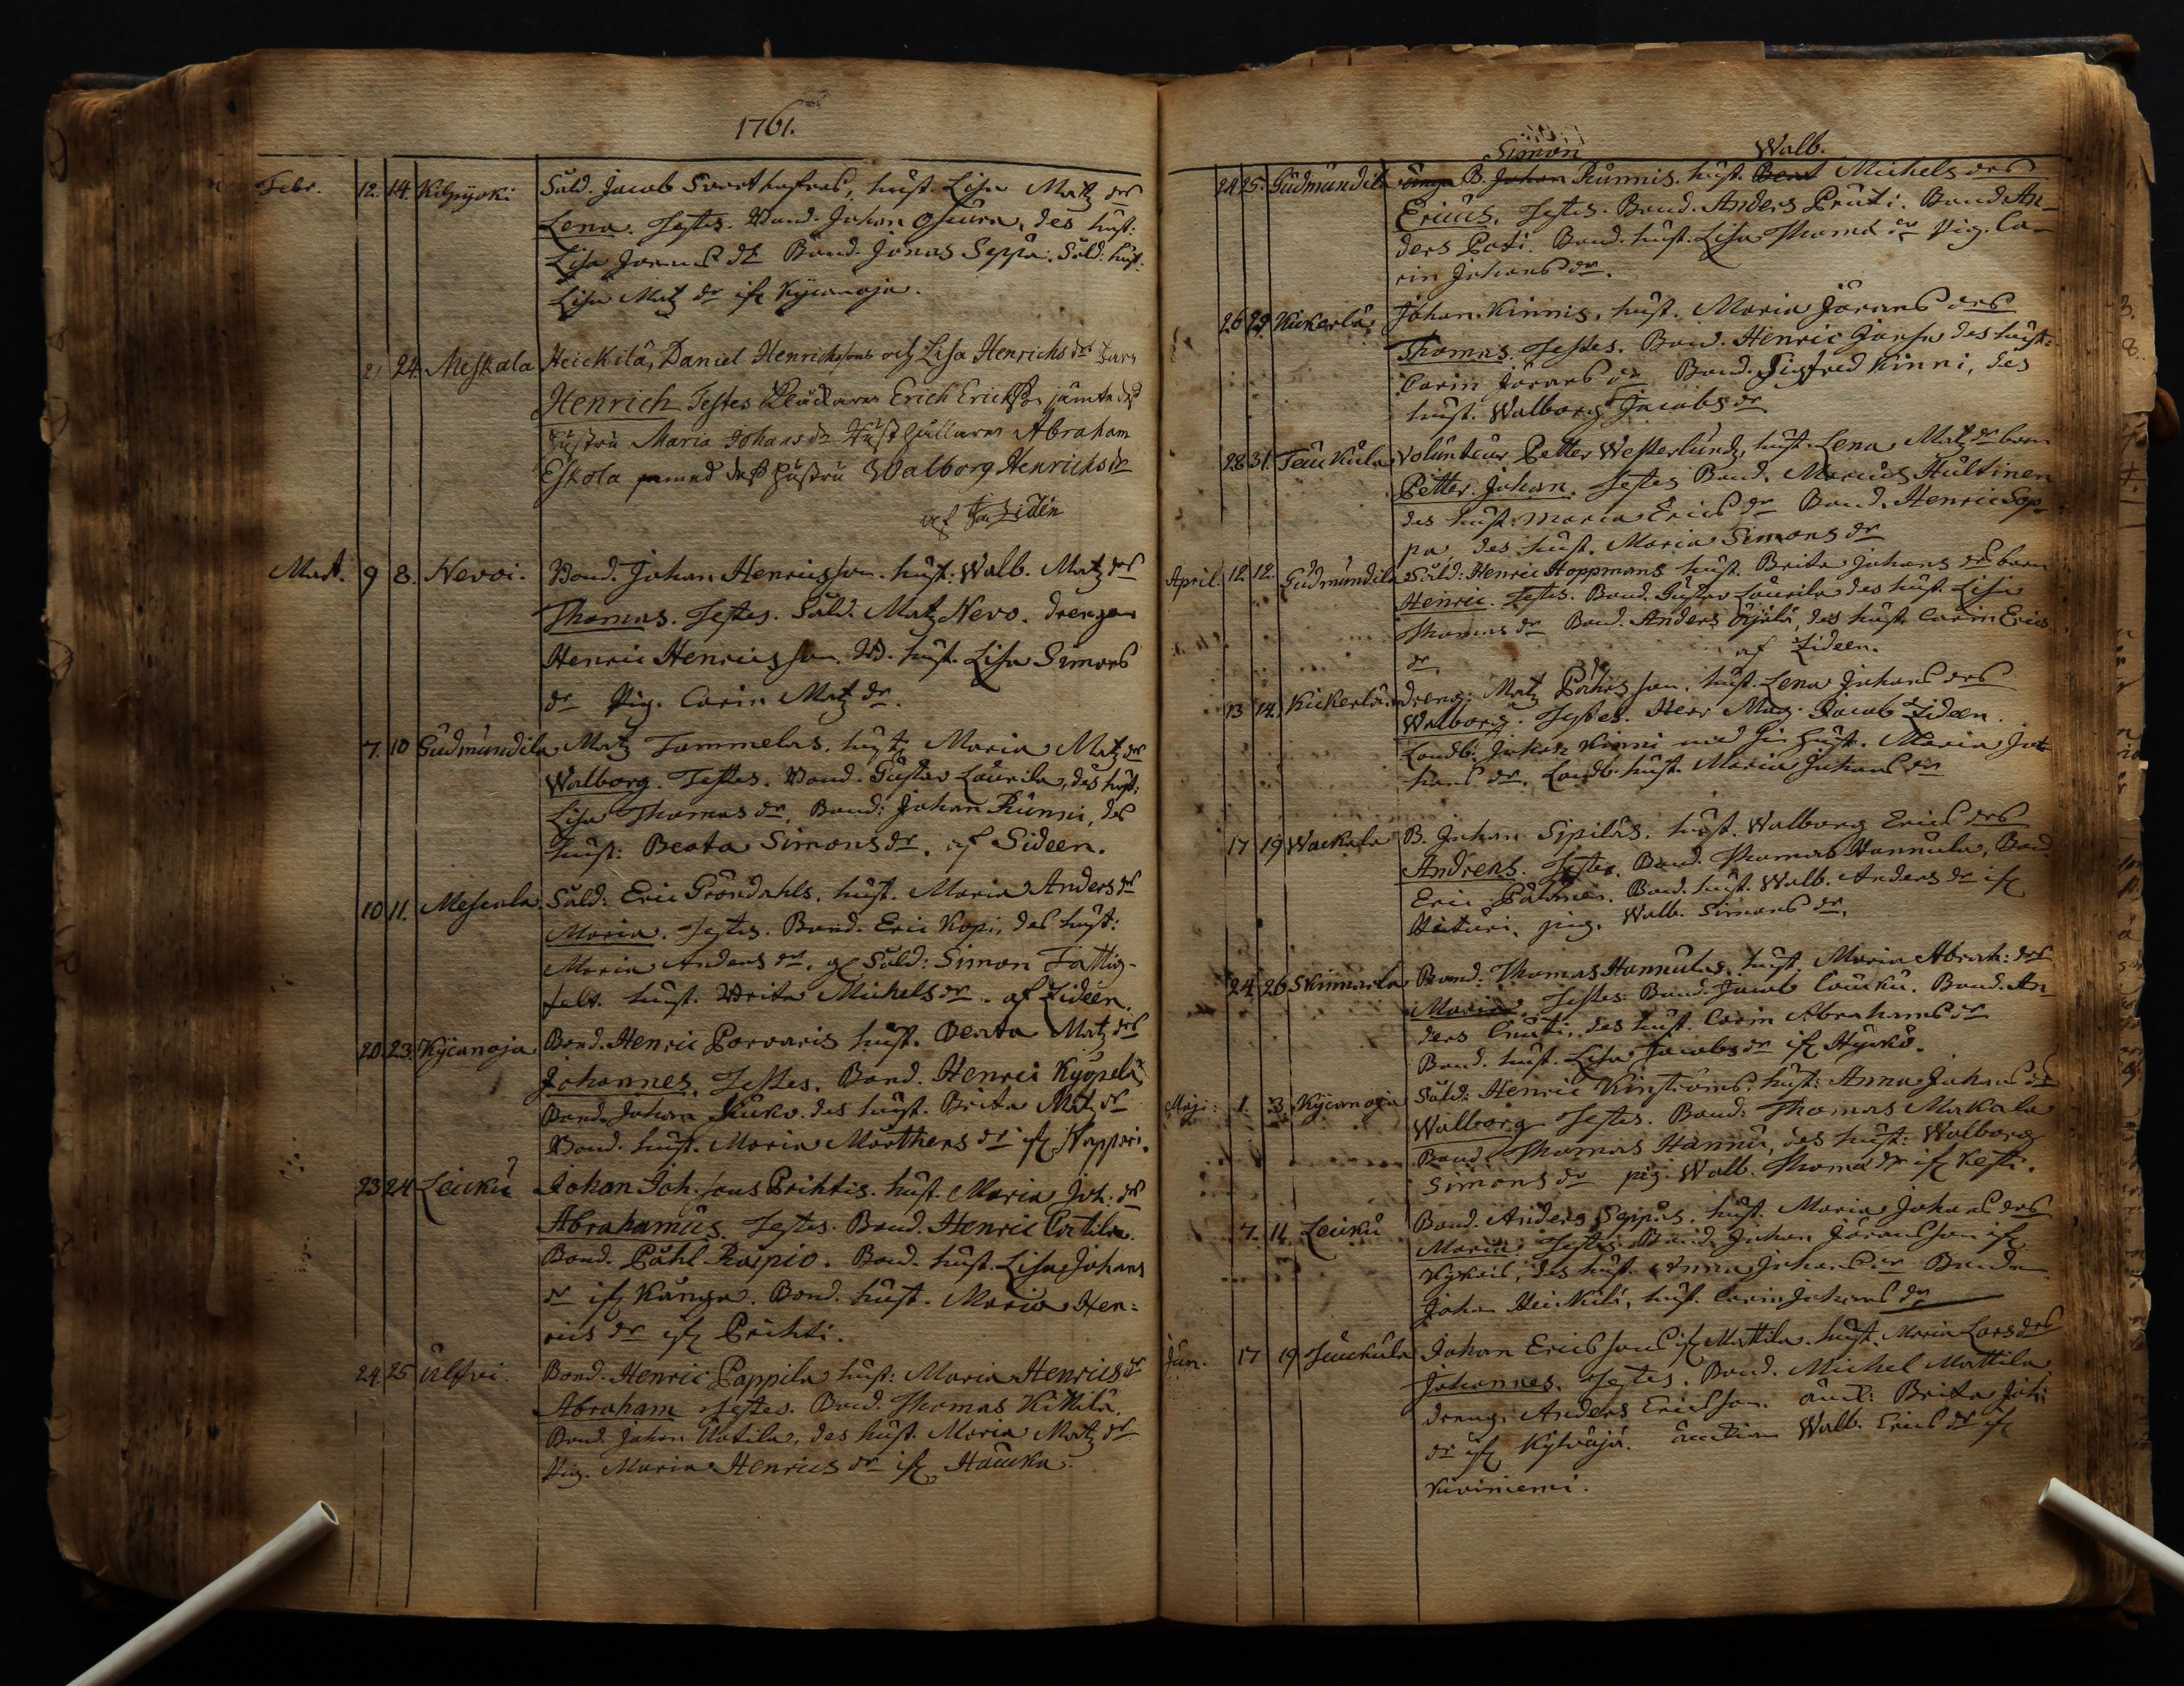 1761.
Febr. 12. 14. Kilpijoki Såld. Jacob Svarthafras, hust. Lisa Matz drs
Lena. Testes. Bond. Johan Ojeura, des hust:
Lisa Jörans dr Bond. Jonas Seppä. Såld: hust.
Lisa Matz dr ifr Kycanoja.
21 24. Meskala Heickilä, Daniel Henrichssons och Lisa Henrichs dr barn
Henrich Testes Klåckaren Erich Erichsson jämte des
hustru Maria Johans dr Husthållaren Abraham
Eskola med dess hustru Walborg Henrichs dr
af Zidén
Mart. 9 8. Nevoi. Bond. Johan Henricsson. hust: Walb. Matz drs
Thomas. Testes. Såld. Matz Nevo. drengen
Henric Henricsson. B. hust. Lisa Simons
dr Pig. Carin Matz dr.
7. 10 Gudmundila Matz Tammelas, hust. Maria Matz drs
Walborg. Testes. Bond. Gustav Laurila, des hust:
Lisa Thomas dr, Bond: Johan Runni, des
hust: Beata Simons dr. af Sideen.
10 11. Mescala Såld: Eric Gröndahls, hust. Maria Anders drs
Maria. Testes. Bond. Eric Kopi, des hust:
Maria Anders dr. Såld: Simon Fattig-
felt. hust. Brita Michels dr. af Zideen.
20. 23. Kycanoja Bond. Henric Porvaris hust. Beata Matz drs
Johannes. Testes. Bond. Henric Kyöpeli
Bond. Johan Kuko. des hust. Brita Matz dr
Bond. hust. Maria Morthens dr ifr Napperi.
23 24 Leicku Johan Joh. sons Prihtis. hust. Maria Joh. drs
Abrahamus. Testes. Bond. Henric Cartila.
Bond. Påhl Raspio. Bond. hust. Lisa Johans
dr ifr Kånga. Bond. hust. Maria Hen:
rics dr ifr Prihti.
24. 25 Ulfvi. Bond. Henric Pappila hust: Maria Henrics drs
Abraham Testes. Bond. Thomas Kikkilä.
Bond. Johan Uotila, des hust. Maria Matz dr
Pig. Maria Henrics dr ifr Haucka.
Simon Walb.
24 25. Gudmundila B. Johan Runnis. hust. Beat Michels drs
Ericus. Testes. Bond. Anders Pruti. Bond. An-
ders Poti. Bond. hust: Lisa Thoma dr Pig. Ca-
rin Johans dr.
26 29. Kickerlä, Johan Kinnis, hust. Maria Jörans drs
Thomas. Testes. Bond. Henric Jonsu des hust:
Carin Jörans dr Bond. Sigfred Kinni, des
hust. Walborg Jacobs dr
28 31. Teuckula Volunteur Petter Westerlund, hust. Lena Matz dr barn
Petter Johan. Testes Bond. Marcus Hultinen
des hust: Maria Erics dr Bond. Henric Sep-
pa, des hust. Maria Simons dr
April. 12. 12. Gudmundila Såld: Henric Hoppmans hust. Brita Johans dr barn
Henric. Testes. Bond. Gustav Laurila des hust. Lisa
Thomas dr Bond. Anders Äijälä, des hust. Carin Erics
dr af Zideen.
13 14. Kickerlä. dreng: Matz Påhlsson, hust. Lena Johans drs
Walborg. Testes. Herr Mag. Jacob Zideen.
Landb: Johan Kinni med sin hust. Maria Jo-
hans dr. Landb. hust. Maria Johans dr
17 19 Wackala B. Johan Sipiläs. hust. Walborg Erics drs
Andreas. Testes. Bond. Thomas Hannula, Bond
Eric Palonen. Bond. hust. Walb. Anders dr ifr
Hituri. pig. Walb. Simons dr.
24. 26 Skinnarla Bond. Thomas Hannulas, hust. Maria Abrah: drs
Maria. Testes: Bond. Jacob Caucku. Bond. An-
ders Cruti, des hust. Carin Abrahams dr
Bond. hust. Lisa Jacobs dr ifr Hyrkö.
Maji: 1. 3. Kycanoja Såld: Henric Kinströms, hust: Anna Johans dr
Walborg Testes. Bond: Thomas Makala
Bond. Thomas Hannu, des hust: Walborg
Simons dr pig. Walb. Thoma dr ifr Kesti.
7. 11. Leicku Bond. Anders Seppäs, hust. Maria Johans drs
Maria. Testes: Bond. Johan Jöransson ifr
des hust. Anna Johans dr Bonden
Johan Heickilä, hust. Carin Johans dr
Jun. 17 19 Teuckula Johan Ericssons ifr Mattila. hust. Maria Lars drs
Johannes. Testes. Bond. Michel Mattila
dreng. Anders Ericsson. Brita Joh:
dr ifr Kylväjä. Walb. Erics dr ifr
Kiviniemi.